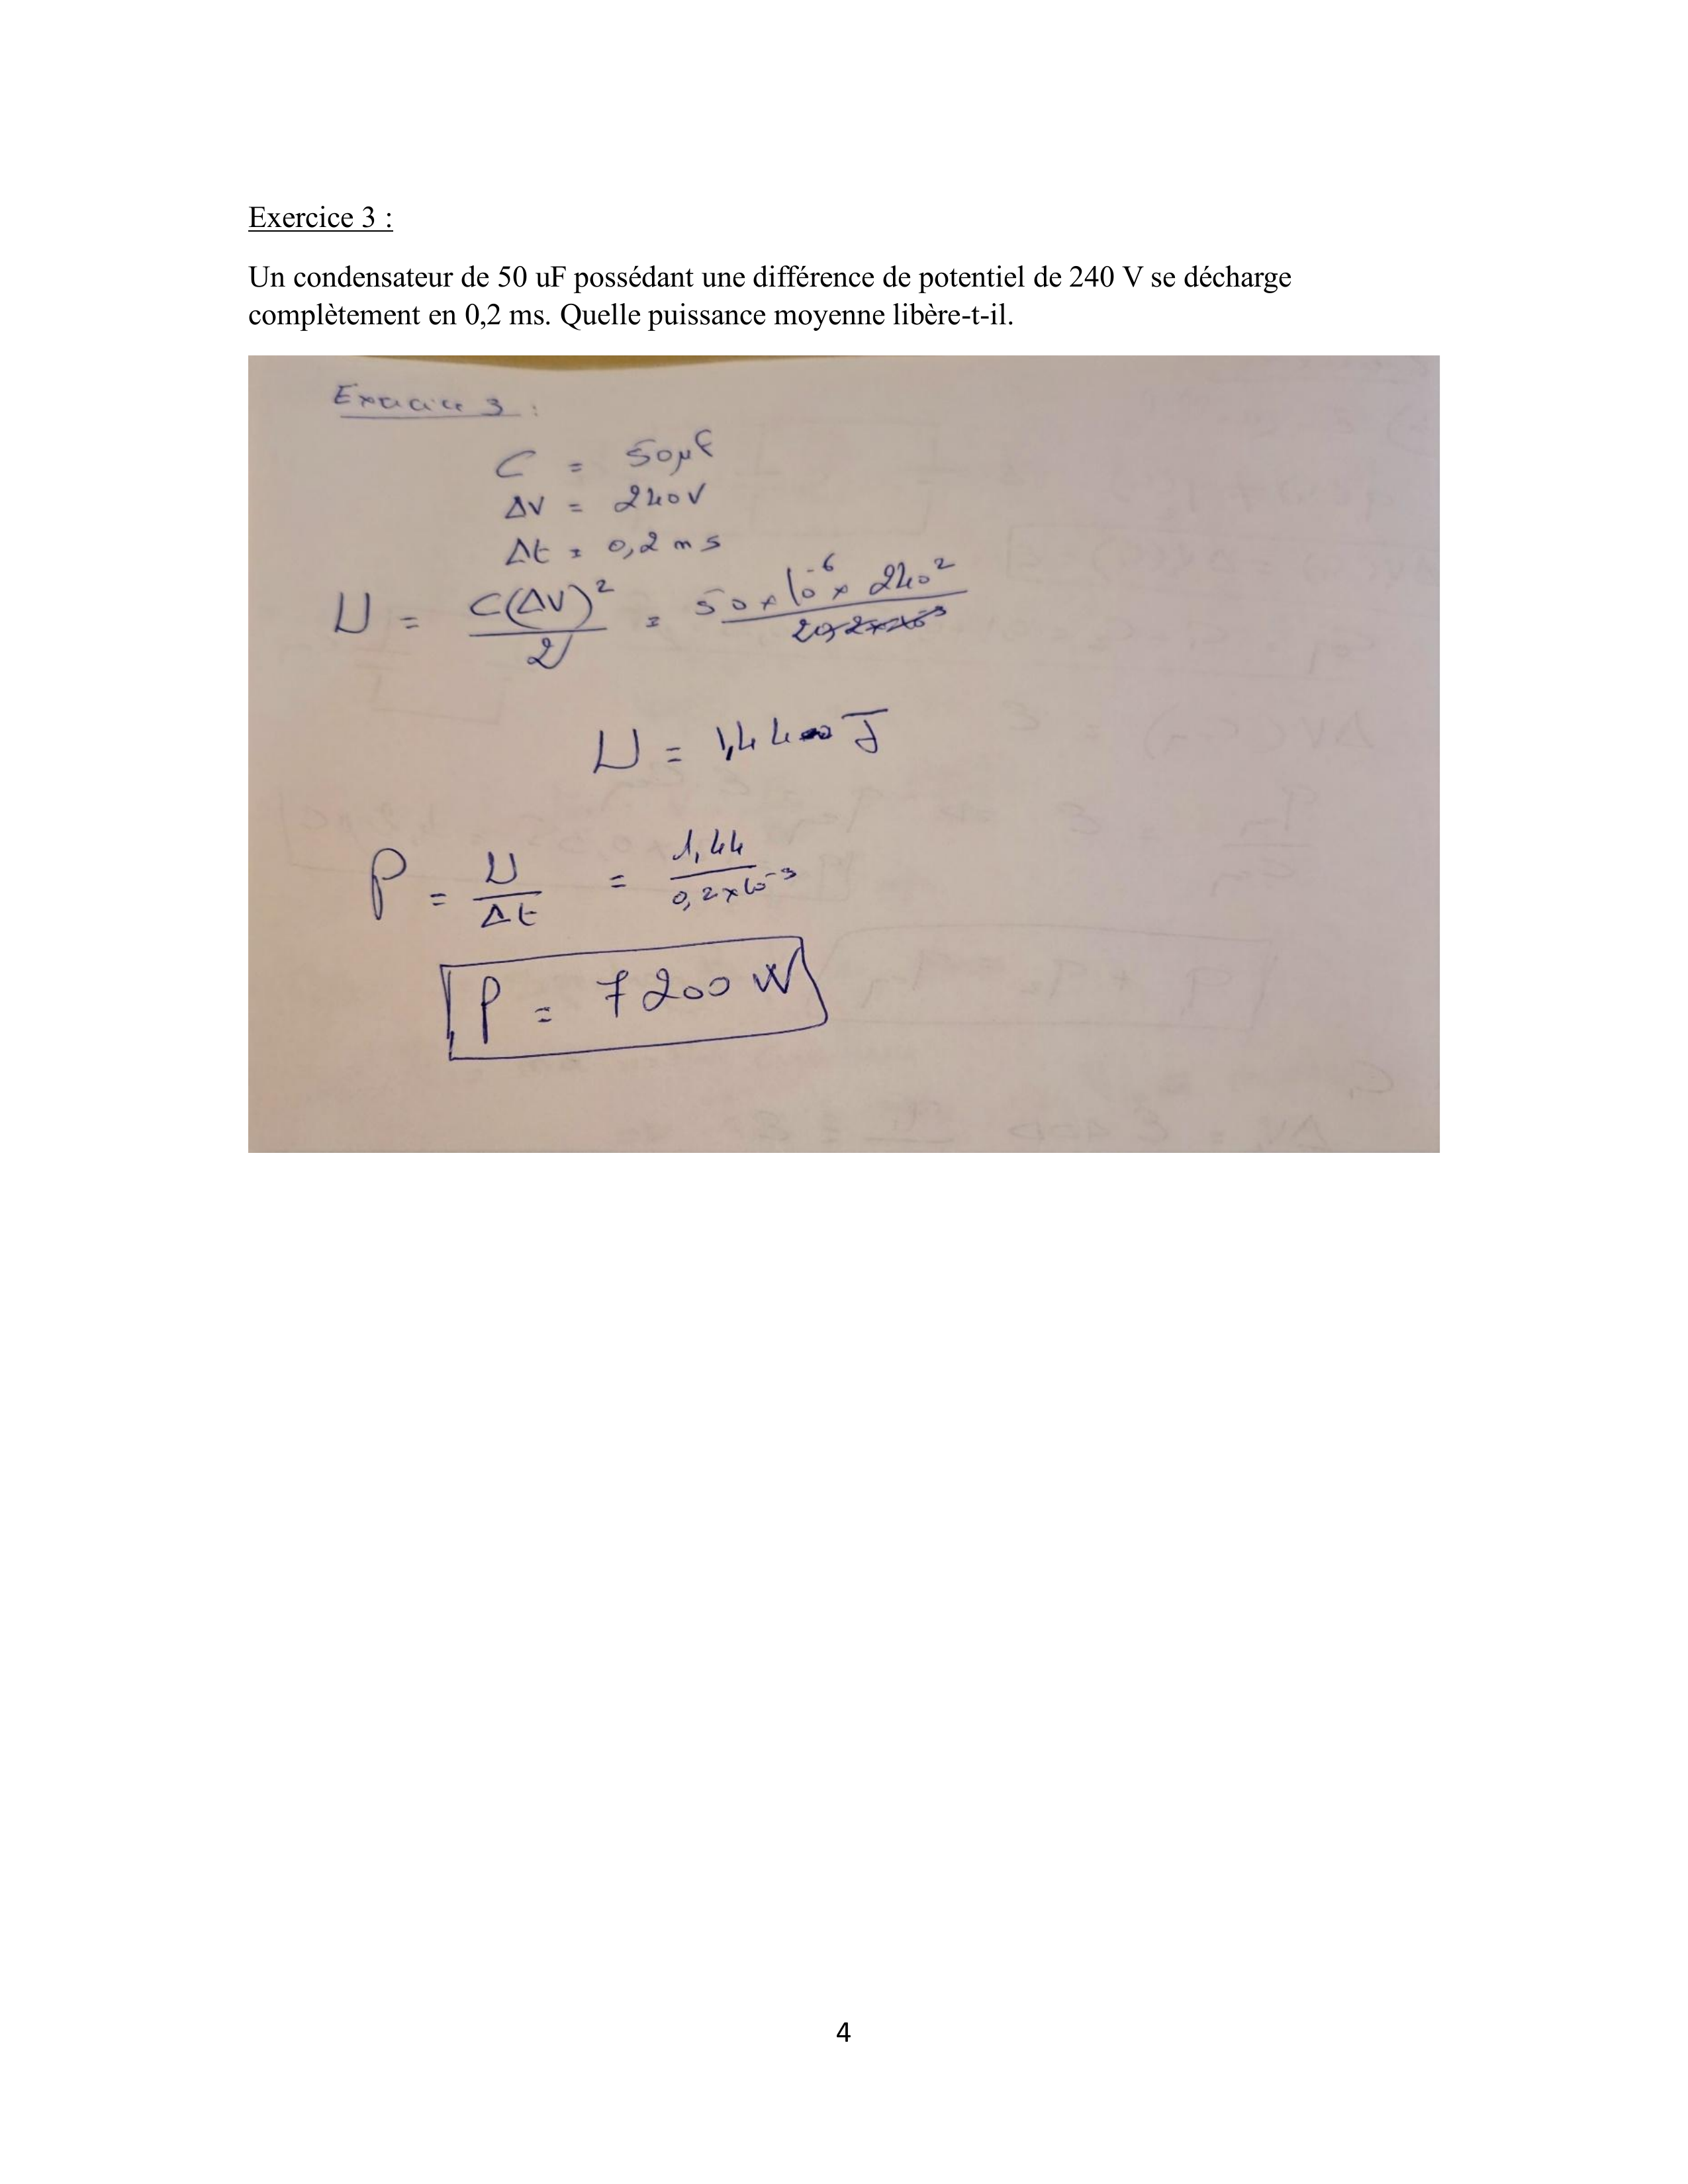 Exercice 3 :
Un condensateur de 50 uF possédant une différence de potentiel de 240 V se décharge
complètement en 0,2 ms. Quelle puissance moyenne libère-t-il.
Exercice 3 :
C = 50μF
ΔV = 240V
Δt = 0,2 ms
U = C(ΔV)²/2 = 50 × 10⁻⁶ × 240²/2
U = 1,44 J
P = U/Δt = 1,44/0,2×10⁻³
P = 7200 W
4